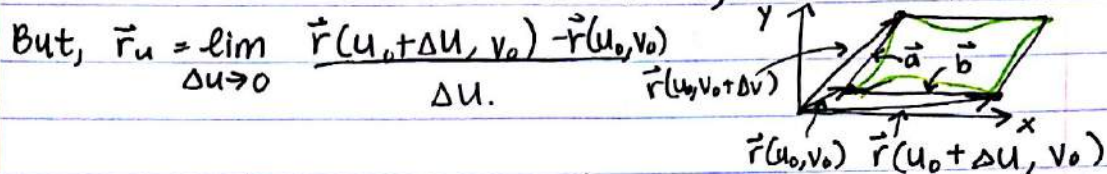 But, r⃗ᵤ = lim Δu→0 r⃗(u₀+Δu, v₀) - r⃗(u₀,v₀) / Δu.
y
a⃗
b⃗
r⃗(u₀,v₀+Δv)
x
r⃗(u₀,v₀) r⃗(u₀+Δu, v₀)